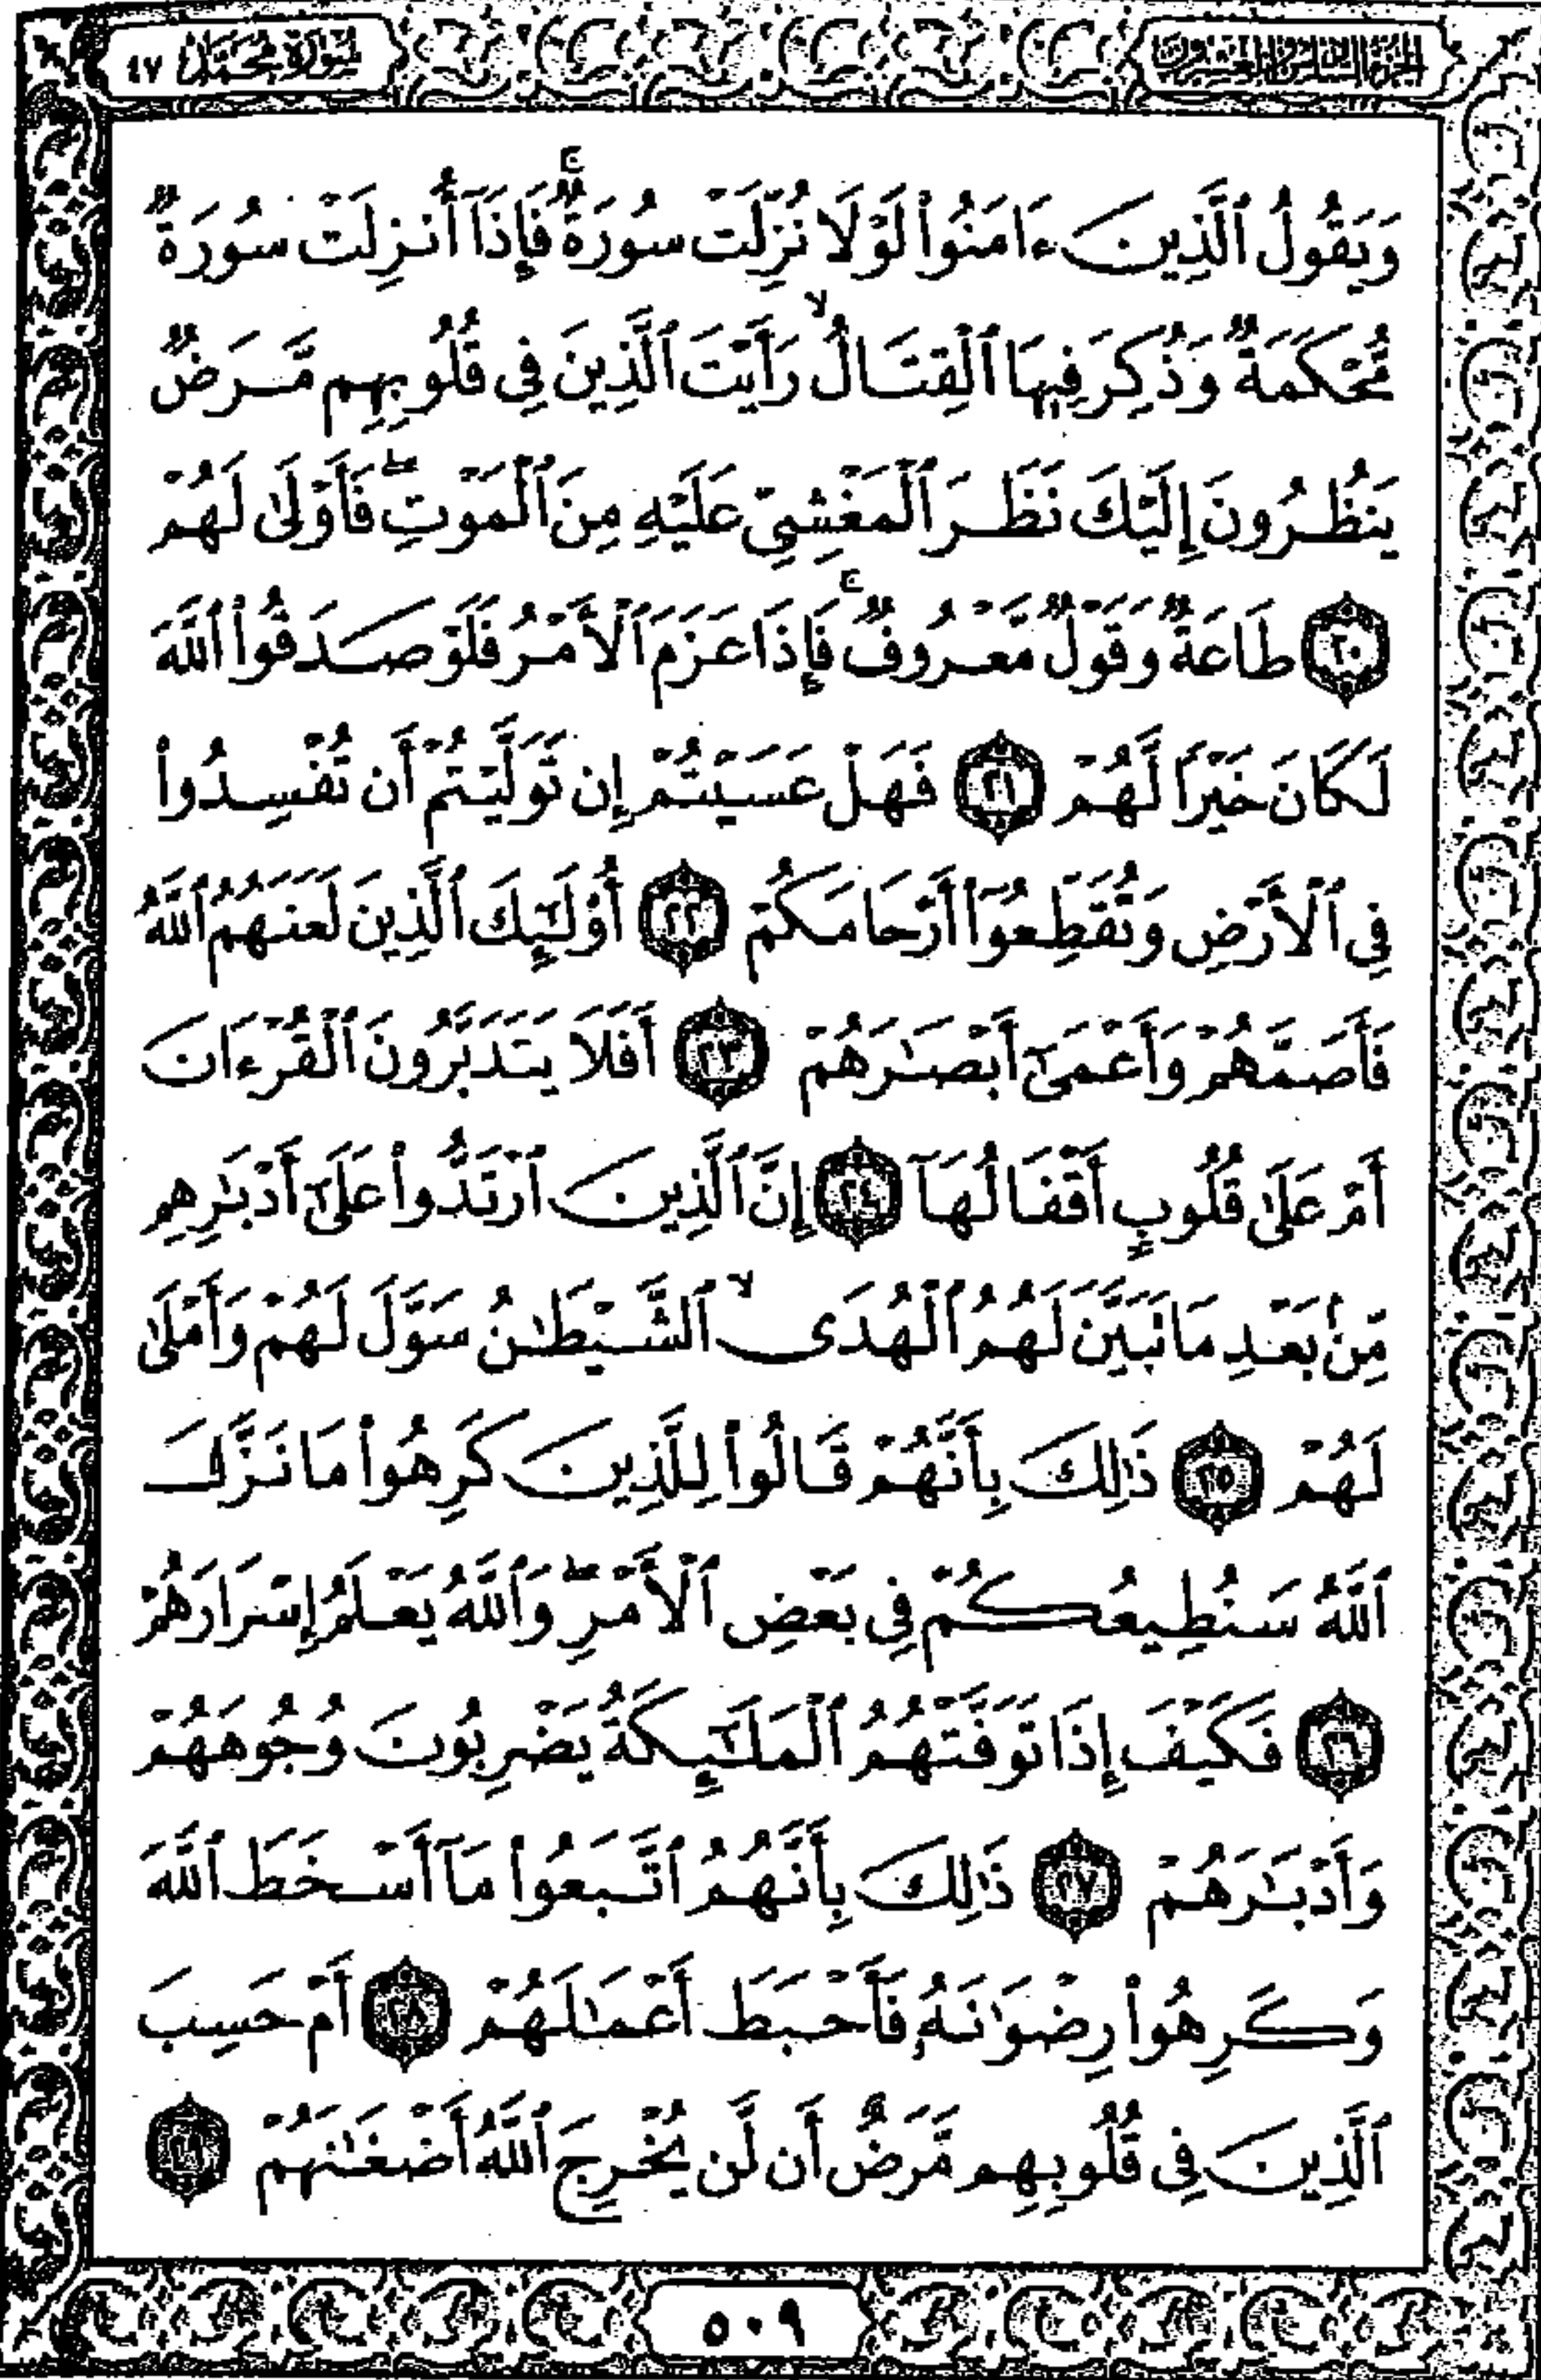 الجزء السادس والعشرون
سورة محمد ٤٧
وَيَقُولُ ٱلَّذِينَ ءَامَنُوا۟ لَوْلَا نُزِّلَتْ سُورَةٌ ۖ فَإِذَآ أُنزِلَتْ سُورَةٌ
مُّحْكَمَةٌ وَذُكِرَ فِيهَا ٱلْقِتَالُ ۙ رَأَيْتَ ٱلَّذِينَ فِى قُلُوبِهِم مَّرَضٌ
يَنظُرُونَ إِلَيْكَ نَظَرَ ٱلْمَغْشِىِّ عَلَيْهِ مِنَ ٱلْمَوْتِ ۖ فَأَوْلَىٰ لَهُمْ
٢٠ طَاعَةٌ وَقَوْلٌ مَّعْرُوفٌ ۚ فَإِذَا عَزَمَ ٱلْأَمْرُ فَلَوْ صَدَقُوا۟ ٱللَّهَ
لَكَانَ خَيْرًا لَّهُمْ ٢١ فَهَلْ عَسَيْتُمْ إِن تَوَلَّيْتُمْ أَن تُفْسِدُوا۟
فِى ٱلْأَرْضِ وَتُقَطِّعُوٓا۟ أَرْحَامَكُمْ ٢٢ أُو۟لَـٰٓئِكَ ٱلَّذِينَ لَعَنَهُمُ ٱللَّهُ
فَأَصَمَّهُمْ وَأَعْمَىٰٓ أَبْصَـٰرَهُمْ ٢٣ أَفَلَا يَتَدَبَّرُونَ ٱلْقُرْءَانَ
أَمْ عَلَىٰ قُلُوبٍ أَقْفَالُهَآ ٢٤ إِنَّ ٱلَّذِينَ ٱرْتَدُّوا۟ عَلَىٰٓ أَدْبَـٰرِهِم
مِّنۢ بَعْدِ مَا تَبَيَّنَ لَهُمُ ٱلْهُدَى ۙ ٱلشَّيْطَـٰنُ سَوَّلَ لَهُمْ وَأَمْلَىٰ
لَهُمْ ٢٥ ذَٰلِكَ بِأَنَّهُمْ قَالُوا۟ لِلَّذِينَ كَرِهُوا۟ مَا نَزَّلَ
ٱللَّهُ سَنُطِيعُكُمْ فِى بَعْضِ ٱلْأَمْرِ ۖ وَٱللَّهُ يَعْلَمُ إِسْرَارَهُمْ
٢٦ فَكَيْفَ إِذَا تَوَفَّتْهُمُ ٱلْمَلَـٰٓئِكَةُ يَضْرِبُونَ وُجُوهَهُمْ
وَأَدْبَـٰرَهُمْ ٢٧ ذَٰلِكَ بِأَنَّهُمُ ٱتَّبَعُوا۟ مَآ أَسْخَطَ ٱللَّهَ
وَكَرِهُوا۟ رِضْوَٰنَهُۥ فَأَحْبَطَ أَعْمَـٰلَهُمْ ٢٨ أَمْ حَسِبَ
ٱلَّذِينَ فِى قُلُوبِهِم مَّرَضٌ أَن لَّن يُخْرِجَ ٱللَّهُ أَضْغَـٰنَهُمْ ٢٩
٥٠٩